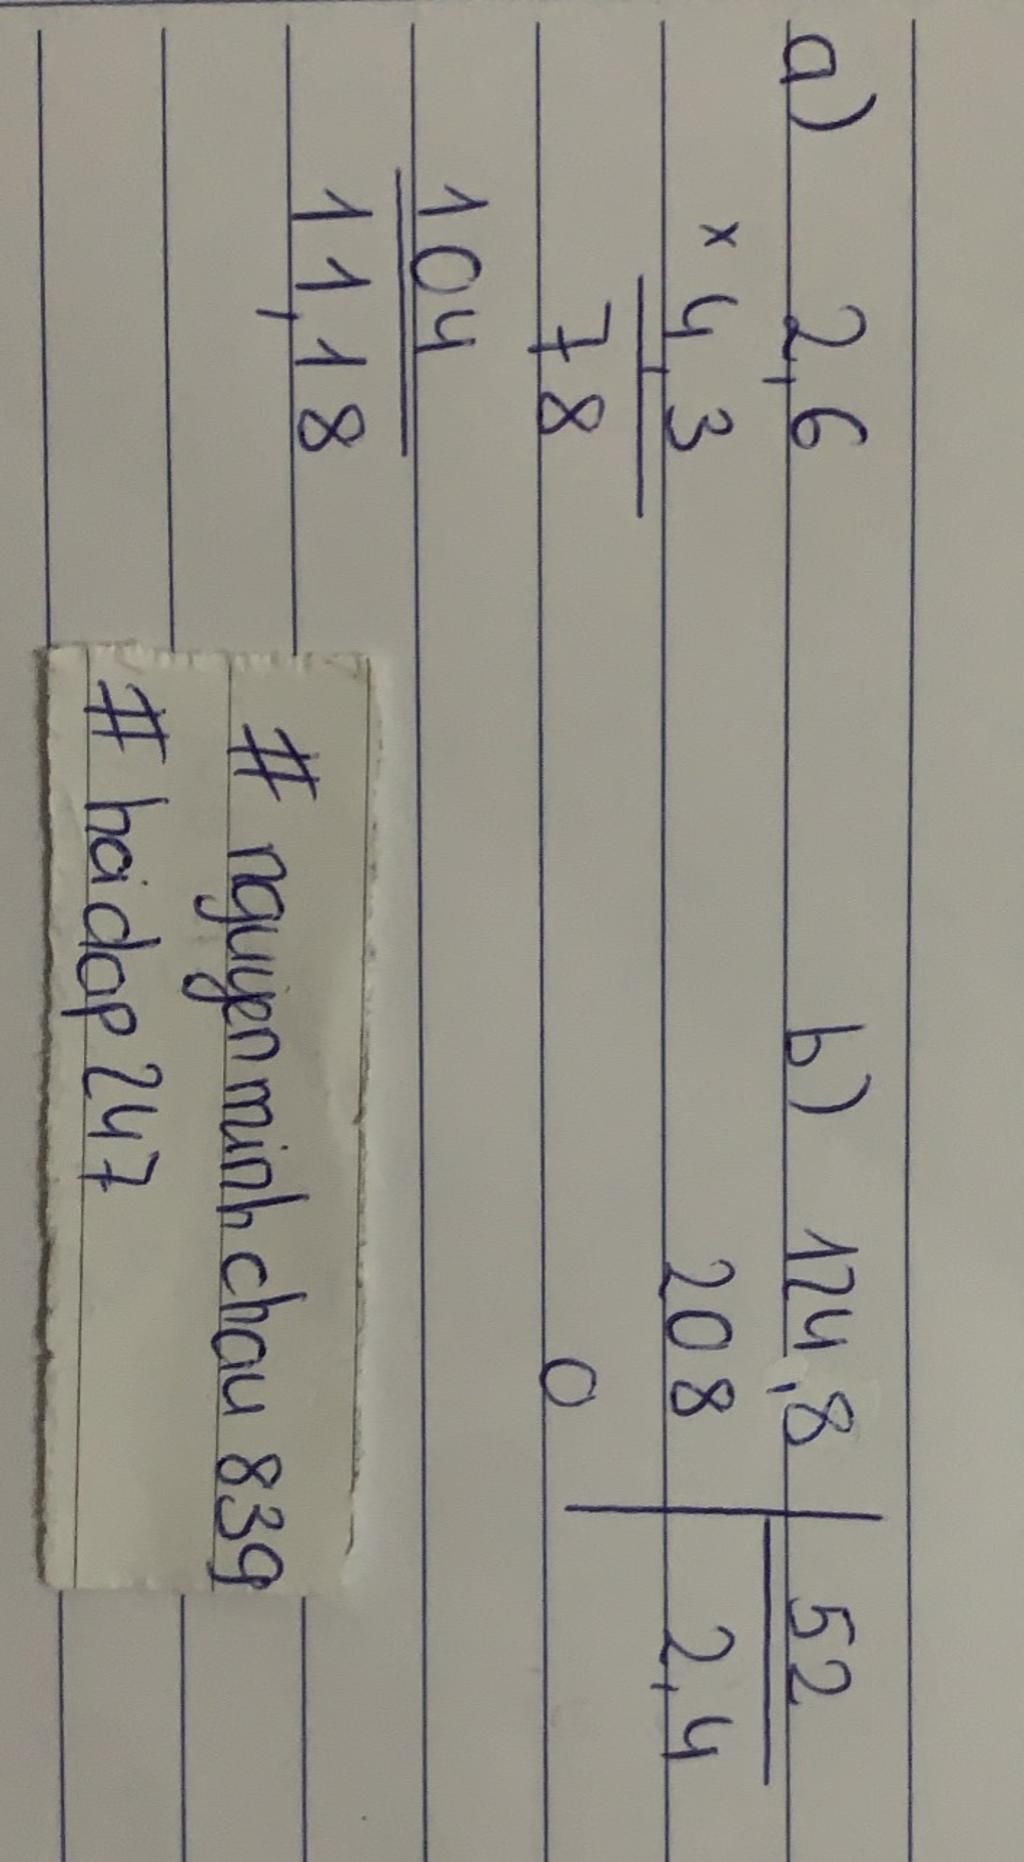 a) 2,6
× 4,3
78
104
11,18
b) 124,8 52
208 2,4
0
# nguyenminhchau839
# hoidap247